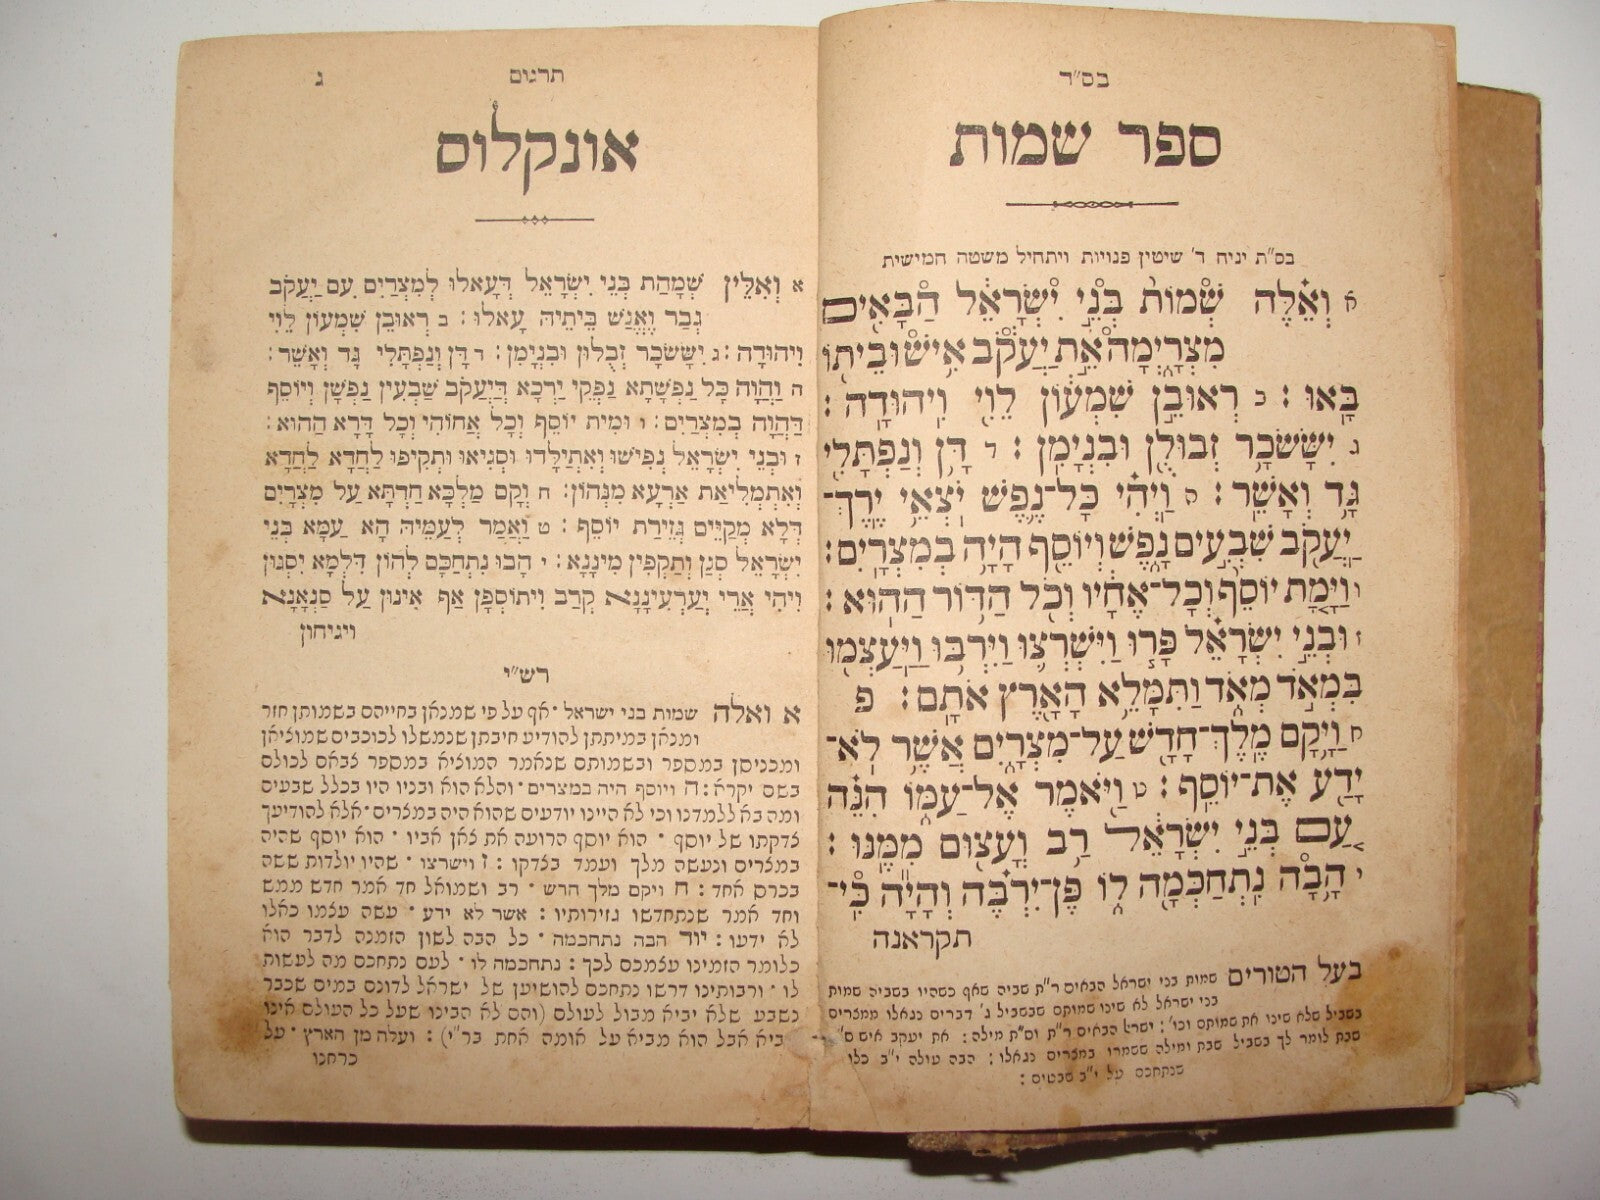 בס"ד
ספר שמות
בס"ת יניח ד' שיטין פנויות ויתחיל משטה חמישית
א וְאֵלֶּה שְׁמוֹת בְּנֵי יִשְׂרָאֵל הַבָּאִים
מִצְרָיְמָה אֵת יַעֲקֹב אִישׁ וּבֵיתוֹ
בָּאוּ : ב רְאוּבֵן שִׁמְעוֹן לֵוִי וִיהוּדָה :
ג יִשָּׂשכָר זְבוּלֻן וּבִנְיָמִן : ד דָּן וְנַפְתָּלִי
גָּד וְאָשֵׁר : ה וַיְהִי כָּל־נֶפֶשׁ יֹצְאֵי יֶרֶךְ־
יַעֲקֹב שִׁבְעִים נָפֶשׁ וְיוֹסֵף הָיָה בְמִצְרָיִם :
ו וַיָּמָת יוֹסֵף וְכָל־אֶחָיו וְכֹל הַדּוֹר הַהוּא :
ז וּבְנֵי יִשְׂרָאֵל פָּרוּ וַיִּשְׁרְצוּ וַיִּרְבּוּ וַיַּעַצְמוּ
בִּמְאֹד מְאֹד וַתִּמָּלֵא הָאָרֶץ אֹתָם : פ
ח וַיָּקָם מֶלֶךְ־חָדָשׁ עַל־מִצְרָיִם אֲשֶׁר לֹא־
יָדַע אֶת־יוֹסֵף : ט וַיֹּאמֶר אֶל־עַמּוֹ הִנֵּה
עַם בְּנֵי יִשְׂרָאֵל רַב וְעָצוּם מִמֶּנּוּ :
י הָבָה נִתְחַכְּמָה לוֹ פֶּן־יִרְבֶּה וְהָיָה כִּי־
תקראנה
בעל הטורים שמות בני ישראל הבאים ר"ת שביה שאף כשהיו בשביה שמות
בני ישראל לא שינו שמותם שבשביל ג' דברים נגאלו ממצרים
בשביל שלא שינו את שמותם וכו' : ישראל הבאים ר"ת וס"ת מילה : את יעקב איש ס"ת
שבת לומר לך בשביל שבת ומילה ששמרו במצרים נגאלו : הבה עולה י"ב כלו
שנתחכם על י"ב שבטים :
תרגום ג
אונקלוס
א וְאִלֵּין שְׁמָהַת בְּנֵי יִשְׂרָאֵל דְּעָאלוּ לְמִצְרַיִם עִם יַעֲקֹב
גְּבַר וֶאֱנַשׁ בֵּיתֵיהּ עָאלוּ : ב רְאוּבֵן שִׁמְעוֹן לֵוִי
וִיהוּדָה : ג יִשָּׂשכָר זְבֻלוּן וּבִנְיָמִן : ד דָּן וְנַפְתָּלִי גָּד וְאָשֵׁר :
ה וַהֲוָה כָּל נַפְשָׁתָא נַפְקֵי יַרְכָא דְּיַעֲקֹב שַׁבְעִין נַפְשָׁן וְיוֹסֵף
דַּהֲוָה בְמִצְרַיִם : ו וּמִית יוֹסֵף וְכָל אֲחוֹהִי וְכָל דָּרָא הַהוּא :
ז וּבְנֵי יִשְׂרָאֵל נְפִישׁוּ וְאִתְיַלָּדוּ וּסְגִיאוּ וּתְקִיפוּ לַחֲדָא לַחֲדָא
וְאִתְמְלִיאַת אַרְעָא מִנְּהוֹן : ח וְקָם מַלְכָּא חַדְתָּא עַל מִצְרַיִם
דְּלָא מְקַיֵּים גְּזֵירַת יוֹסֵף : ט וַאֲמַר לְעַמֵּיהּ הָא עַמָּא בְּנֵי
יִשְׂרָאֵל סְגַן וְתַקְּפִין מִינָנָא : י הָבוּ נִתְחַכַּם לְהוֹן דִּלְמָא יִסְגּוּן
וִיהֵי אֲרֵי יְעָרְעִינָנָא קְרָב וְיִתּוֹסְפָן אַף אִינוּן עַל סַנְאָנָא
ויגיחון
רש"י
א ואלה שמות בני ישראל · אף על פי שמנאן בחייהם בשמותן חזר
ומנאן במיתתן להודיע חיבתן שנמשלו לכוכבים שמוציאן
ומכניסן במספר ובשמותם שנאמר המוציא במספר צבאם לכולם
בשם יקרא : ה ויוסף היה במצרים · והלא הוא ובניו היו בכלל שבעים
ומה בא ללמדנו וכי לא היינו יודעים שהוא היה במצרים · אלא להודיעך
צדקתו של יוסף · הוא יוסף הרועה את צאן אביו · הוא יוסף שהיה
במצרים ונעשה מלך ועמד בצדקו : ז וישרצו · שהיו יולדות ששה
בכרס אחד : ח ויקם מלך חדש · רב ושמואל חד אמר חדש ממש
וחד אמר שנתחדשו גזירותיו : אשר לא ידע · עשה עצמו כאלו
לא ידעו : יוד הבה נתחכמה · כל הבה לשון הזמנה לדבר הוא
כלומר הזמינו עצמכם לכך : נתחכמה לו · לעם נתחכם מה לעשות
לו · ורבותינו דרשו נתחכם להושיען של ישראל לדונם במים שכבר
נשבע שלא יביא מבול לעולם (והם לא הבינו שעל כל העולם אינו
מביא אבל הוא מביא על אומה אחת בר"י) : ועלה מן הארץ · על
כרחנו